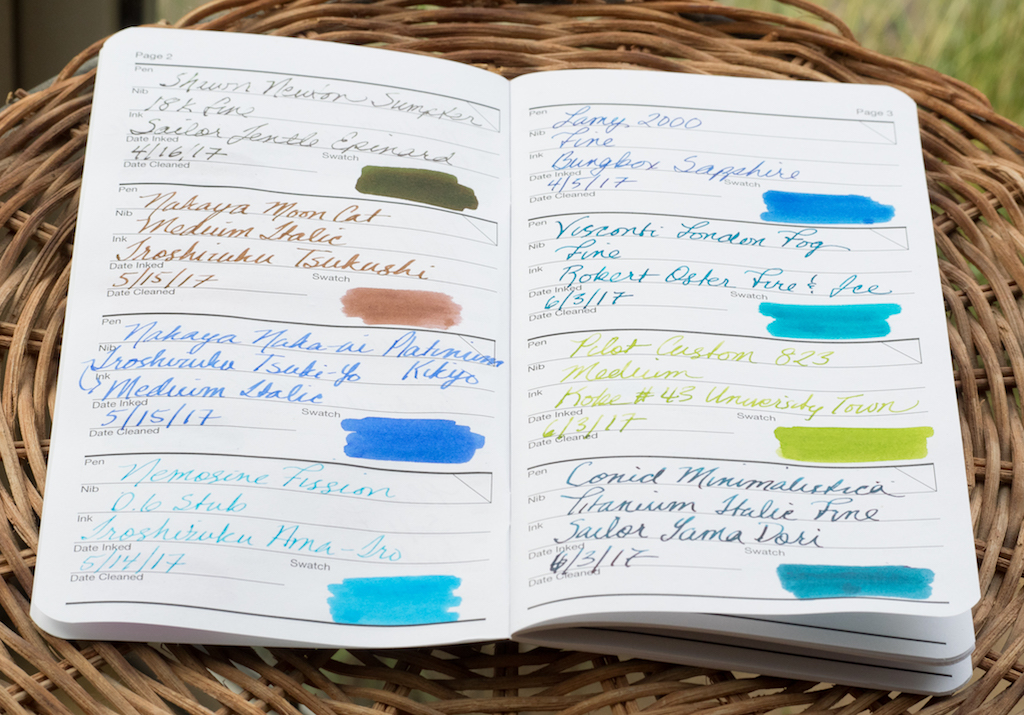 Page 2
Pen Shawn Newton Sumpter
Nib 18K fine
Ink Sailor Jentle Epinard
Date Inked 4/16/17 Swatch
Date Cleaned
Pen Nakaya Moon Cat
Nib Medium Italic
Ink Iroshizuku Tsukushi
Date Inked 5/15/17 Swatch
Date Cleaned
Pen Nakaya Naka-ai Platinium
Nib Iroshizuku Tsuki-Yo Kikyo
Ink Medium Italic
Date Inked 5/15/17 Swatch
Date Cleaned
Pen Nemosine Fission
Nib 0.6 Stub
Ink Iroshizuku Ama-Iro
Date Inked 5/14/17 Swatch
Date Cleaned
Page 3
Pen Lamy 2000
Nib Fine
Ink Bungbox Sapphire
Date Inked 4/5/17 Swatch
Date Cleaned
Pen Visconti London Fog
Nib Fine
Ink Robert Oster Fire & Ice
Date Inked 6/3/17 Swatch
Date Cleaned
Pen Pilot Custom 823
Nib Medium
Ink Kobe #43 University Town
Date Inked 6/3/17 Swatch
Date Cleaned
Pen Conid Minimalistica
Nib Titanium Italic Fine
Ink Sailor Yama Dori
Date Inked 6/3/17 Swatch
Date Cleaned